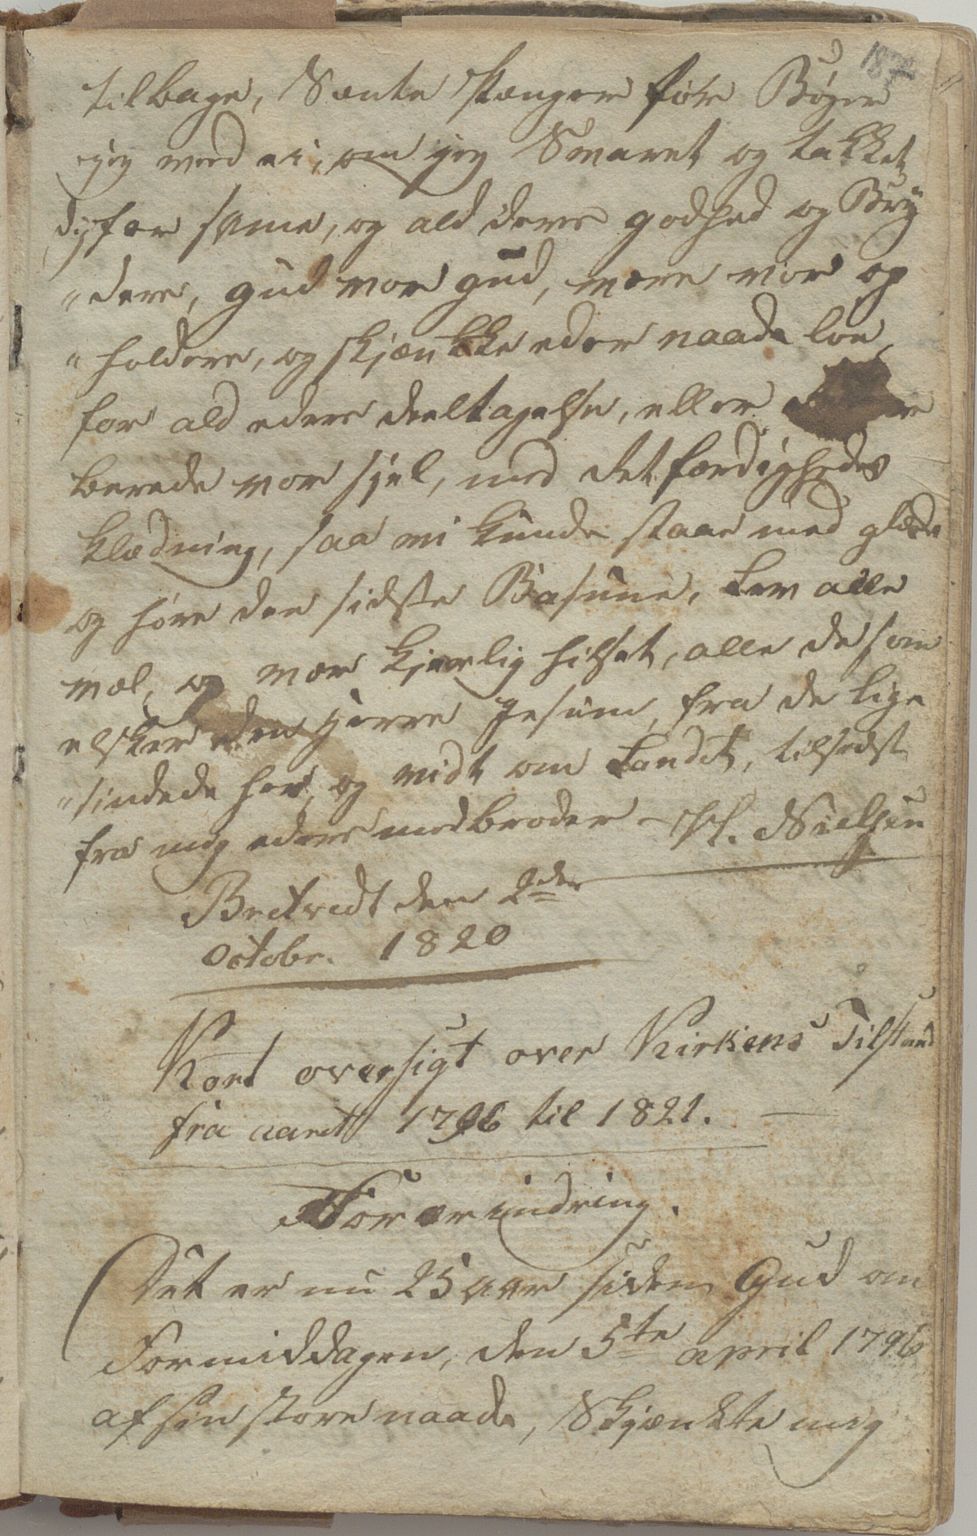 187
tilbage, Sente Penger før Bøger
jeg med ei, om jeg Svaret og takket
dig for same, og ald deres godhed og Brÿ
"dere, gud vor gud, være vor op
"holdere, og skjænkke eder naade løn,
for ald eders deeltagelse, eller
berede vor sjel, med Retfærdigheds
klædning, saa vi kunde staae med glæde
og høre den sidste Basune. Lev alle
vel, og vær kjærlig hilset, alle de som
elsker den Herre Jesum, fra de lige
"sindede her, og vidt om Landet, tilsidst
fra mig eders medbroder – H. Nielsen
Bredtvedt den 2den
Octobr. 1820
Kort oversigt over Kirkens Tilstand
fra aaret 1796 til 1821. —
Forerindring.
Det er nu 25 aar siden Gud om
Formiddagen, den 5te april 1796
af sin store naade, Skjænkte mig